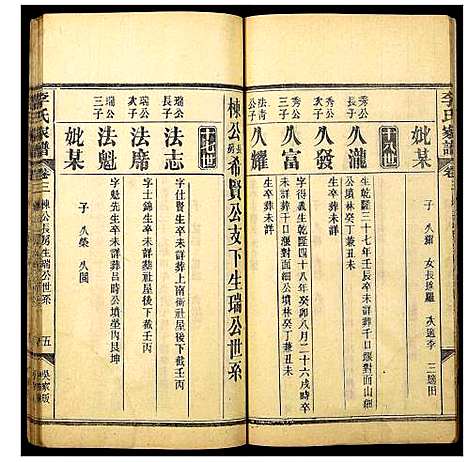 李氏家譜
卷三
妣某
子 久耀 女長適羅 次適李 三適田
十八世
秀公長子
久瀧
生乾隆三十七年壬辰卒未詳葬千口堰對面山細公墳林癸丁兼丑未
秀公次子
久發
生卒未詳
久富
字得義生乾隆四十八年癸卯八月二十六戌時卒未詳葬千口堰對面細公墳林癸丁兼丑未
法青公子
久耀
生卒未詳
棟公長房希賢公支下生瑞公世系
十七世
瑞公長子
法志
字仕賢生卒未詳葬上南衝社屋後下截壬丙
瑞公次子
法席
字士錦生卒未詳葬社屋後下截壬丙
瑞公三子
法魁
字魁先生卒未詳葬呂時公墳塋內艮坤
妣某
子 久榮 久圓
李氏家譜
卷三
棟公長房生瑞公世系
五